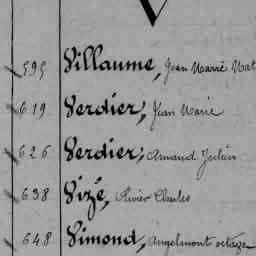 V
595 Villaume, Jean Marie Mat
619 Verdier, Jean Marie
626 Verdier, Armand Julien
638 Vizé, Olivier Charles
648 Vimond, Angelmont octave